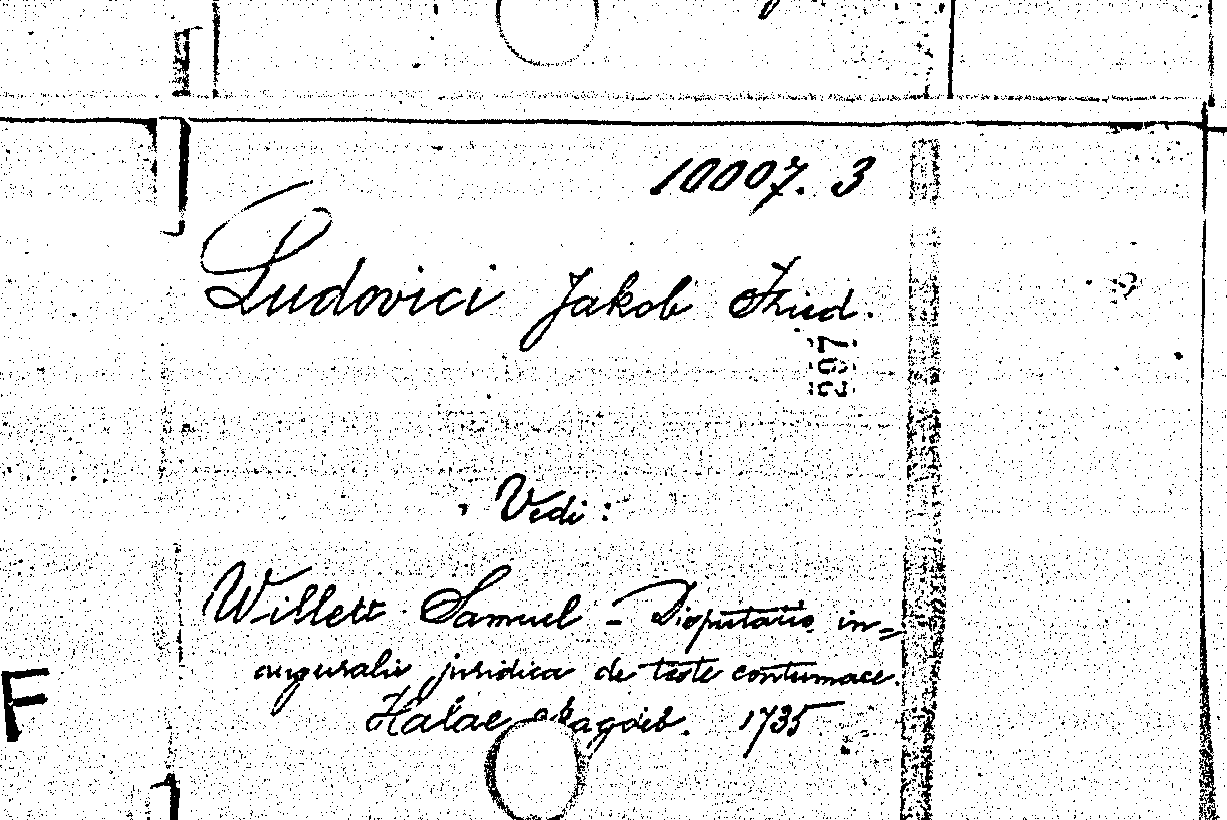 10007. 3
Ludovici Jakob Fried.
297
Vedi:
Willett Samuel - Disputatio in=
auguralis juridica de teste contumace.
Halae Magdeb. 1735
F